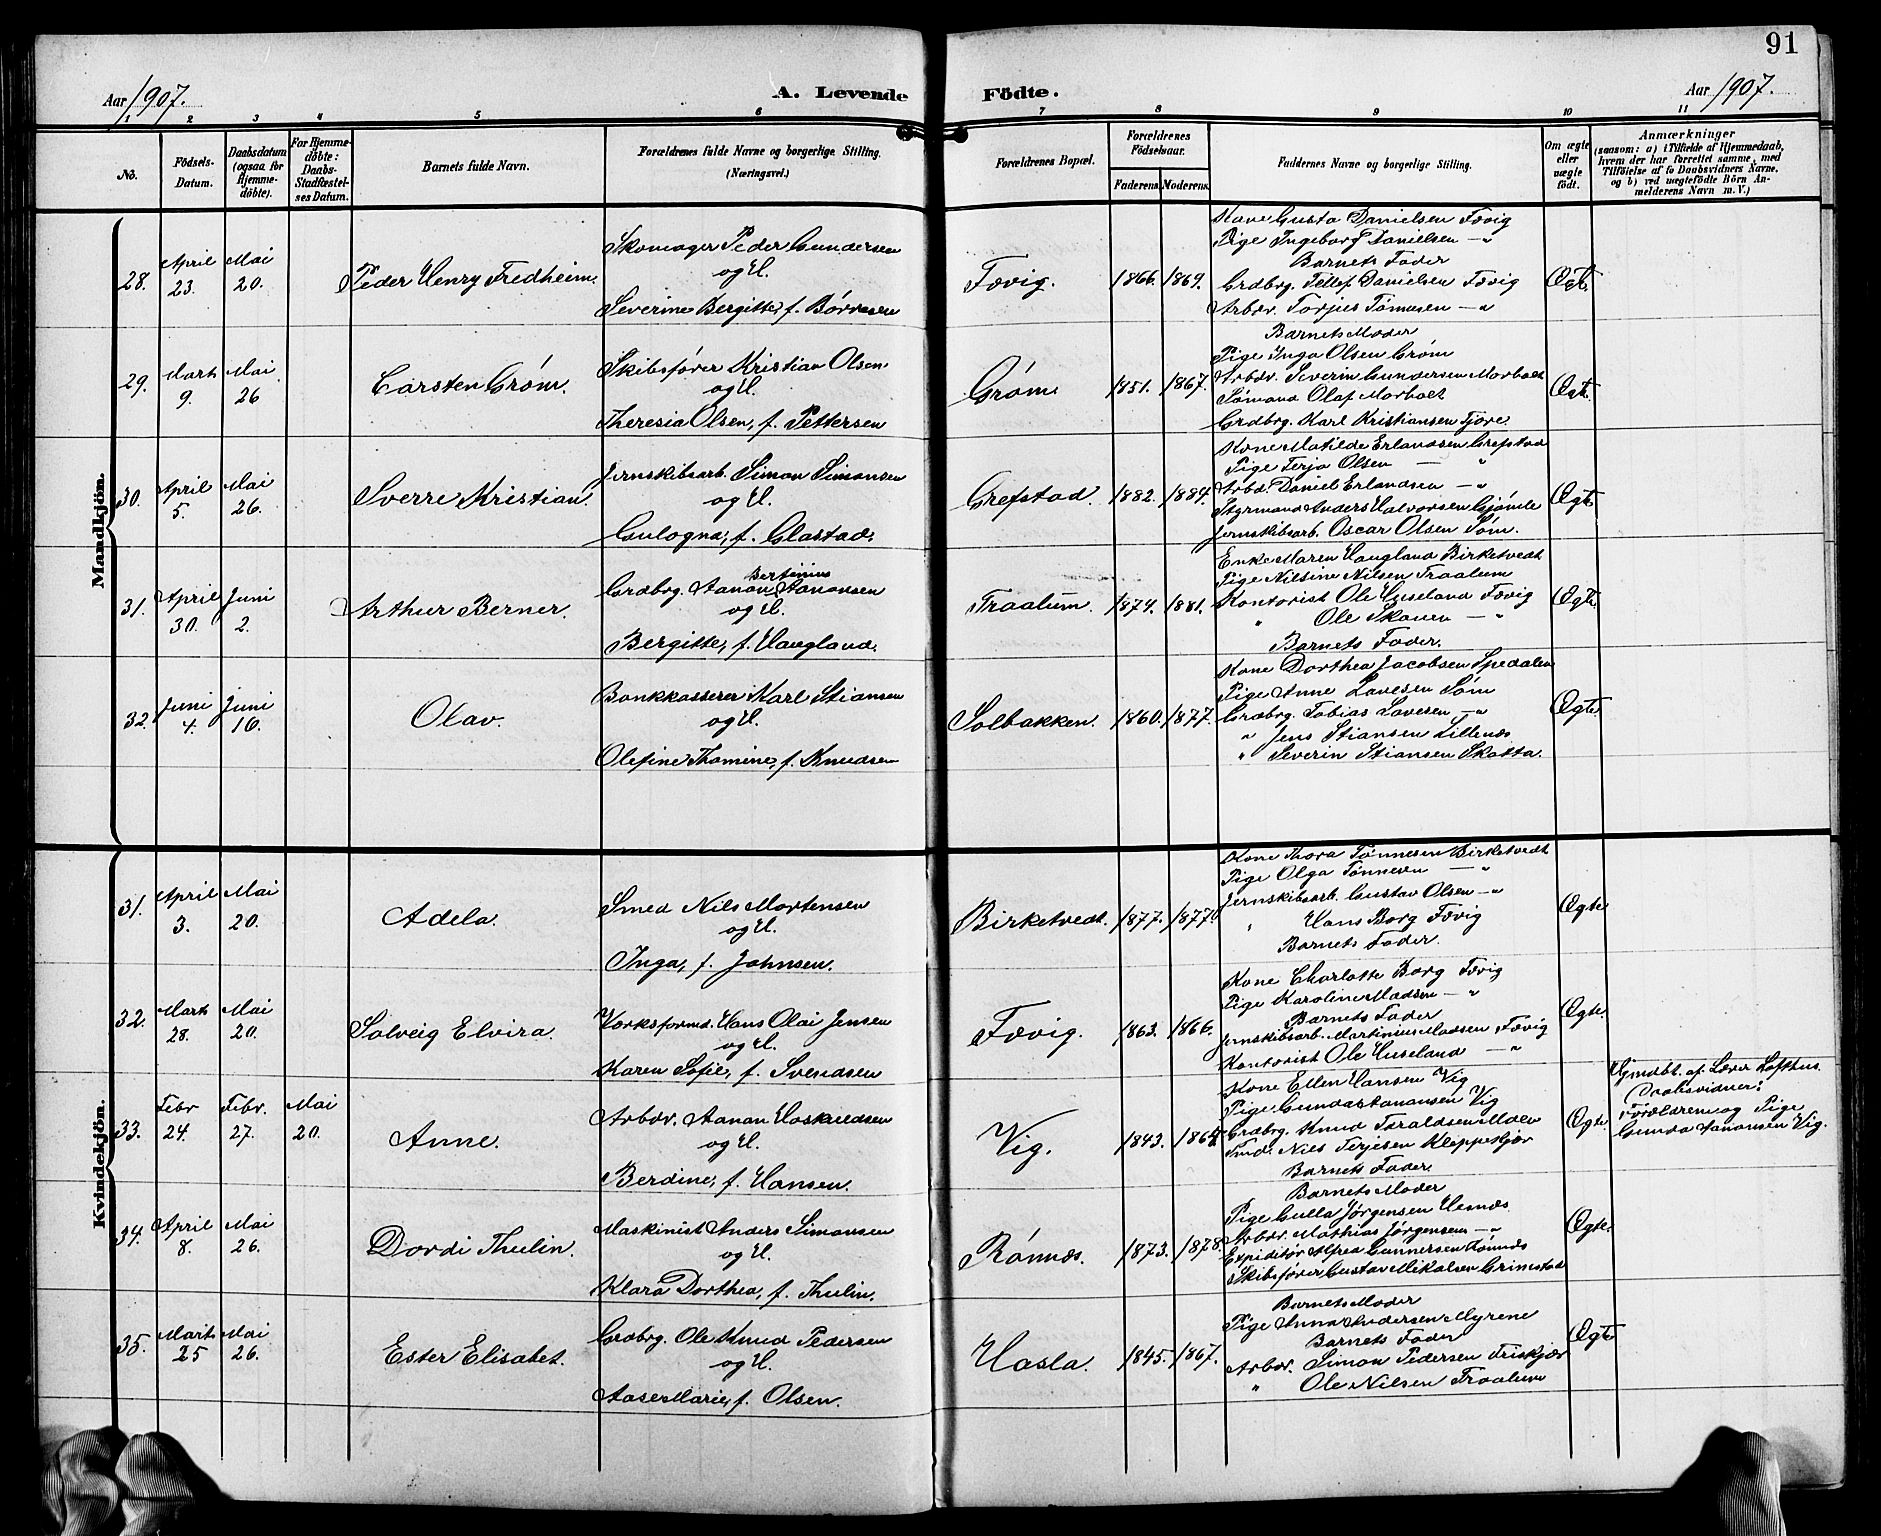 91
Aar 1907. A. Levende Födte. Aar 1907.
1 2 3 4 5 6 7 8 9 10 11
No. Födsels-Datum. Daabsdatum (ogsaa for Hjemme-döbte). For Hjemme-döbte: Daabs-Stadfæstel-ses Datum. Barnets fulde Navn. Forældrenes fulde Navne og borgerlige Stilling. (Næringsvei.) Forældrenes Bopæl. Forældrenes Födselsaar. Faderens. Moderens. Faddernes Navne og borgerlige Stilling. Om ægte eller uægte födt. Anmærkninger (saasom: a) i Tilfælde af Hjemmedaab, hvem der har forrettet samme, med Tilföielse af to Daabsvidners Navne, og b) ved uægtefödte Börn An-melderens Navn m. V.)
Mandkjön.
28. April 23. Mai 20. Peder Henry Fredheim.
Skomager Peder Gundersen
og H.
Severine Bergitte, f. Börresen
Fævig. 1866. 1869.
Kone Gusta Danielsen Fævig
Pige Ingeborg Danielsen — "
Barnets Fader
Grdbrg. Tellef Danielsen Fævig
Arbdr. Torjus Tönnesen — "
Ægt.
29. Marts 9. Mai 26 Carsten Gröm.
Skibsförer Kristian Olsen
og H.
Theresia Olsen, f. Pettersen
Gröm 1851. 1867.
Barnets Moder
Pige Inga Olsen Gröm
Arbdr. Severin Gundersen Morholt
Sömand Olaf Morholt
Grdbrg. Karl Kristiansen Fjære
Ægt.
30. April 5. Mai 26. Sverre Kristian.
Jernskibsarb. Simon Simonsen
og H.
Gulogna, f. Glastad.
Grefstad. 1882. 1884.
Kone Matilde Erlandsen Grefstad
Pige Terja Olsen — "
Arbd. Daniel Erlandsen — "
Styrmand Anders Halvorsen Gjömle
Jernskibsarb. Oscar Olsen Söm.
Ægte
31. April 30. Juni 2. Arthur Berner.
Bertinius
Grdbrg. Aanon Aanonsen
og H.
Bergitte, f. Haugland.
Traalum. 1874. 1881.
Enke Maren Haugland Birketvedt
Pige Nilsine Nilsen Traalum
Kontorist Ole Huseland Fævig
" Ole Skauen — "
Barnets Fader.
Ægte
32. Juni 4. Juni 16. Olav.
Bankkasserer Karl Stiansen
og H.
Olefine Thomine, f. Knudsen
Solbakken. 1860. 1877.
Kone Dorthea Jacobsen Spedalen
Pige Anne Lavesen Söm
Grdbrg. Tobias Lavesen — "
" Jens Stiansen Lillenæs
" Severin Stiansen Skatta.
Ægte
Kvindekjön.
31. April 3. Mai 20. Adela.
Smed Nils Mortensen
og H.
Inga, f. Johnsen.
Birketvedt. 1877. 1877.
Kone Thora Tönnesen Birketvedt
Pige Olga Tönnesen — "
Jernskibsarb. Gustav Olsen — "
" Hans Borg Fævig
Barnets Fader.
Ægte
32. Marts 28. Mai 20. Solveig Elvira.
Værksformd. Hans Olai Jensen
og H.
Karen Sofie, f. Svendsen
Fævig. 1863. 1866.
Kone Charlotte Borg Fævig
Pige Karoline Madsen — "
Barnets Fader
Jernskibsarb. Martinius Madsen Fævig
Kontorist Ole Huseland — "
Ægte.
33. Febr 24. Febr. 27. Mai 20. Anne.
Arbdr. Aanon Hoskuldsen
og H.
Berdine, f. Hansen.
Vig. 1843. 1864
Kone Ellen Hansen Vig
Pige Gunda Aanonsen Vig
Grdbrg. Knud Taraldsen Molv
Tmd. Nils Terjesen Kleppekjær
Barnets Fader
Ægte.
Hjmdbt. af Lærer Lofthus.
Daabsvidner:
Forældrene og Pige
Gunda Aanonsen Vig.
34. April 8. Mai 26. Dordi Thulin.
Maskinist Anders Simonsen
og H.
Klara Dorthea, f. Thulin.
Rönnæs. 1873. 1878.
Barnets Moder
Pige Gulla Jörgensen Hesnæs
Arbdr. Mathias Jörgensen — "
Expeditör Alfred Gunnersen Rönnæs
Skibsförer Gustav Mikalsen Grimstad
Ægte.
35. Marts 25 Mai 26. Ester Elisabet.
Grdbrg. Ole Knud Pedersen
og H.
Aase Marie, f. Olsen.
Hasla. 1845. 1867.
Barnets Moder
Pige Anna Andersen Myrene
Barnets Fader
Arbdr. Simon Pedersen Friskjær
" Ole Nilsen Traalum
Ægte